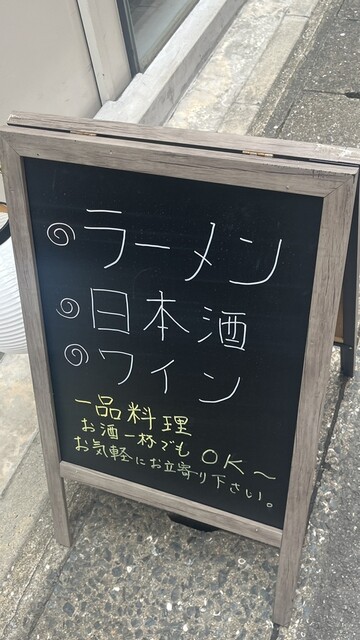 ラーメン
日本酒
ワイン
一品料理
お酒一杯でもOK～
お気軽にお立寄り下さい。